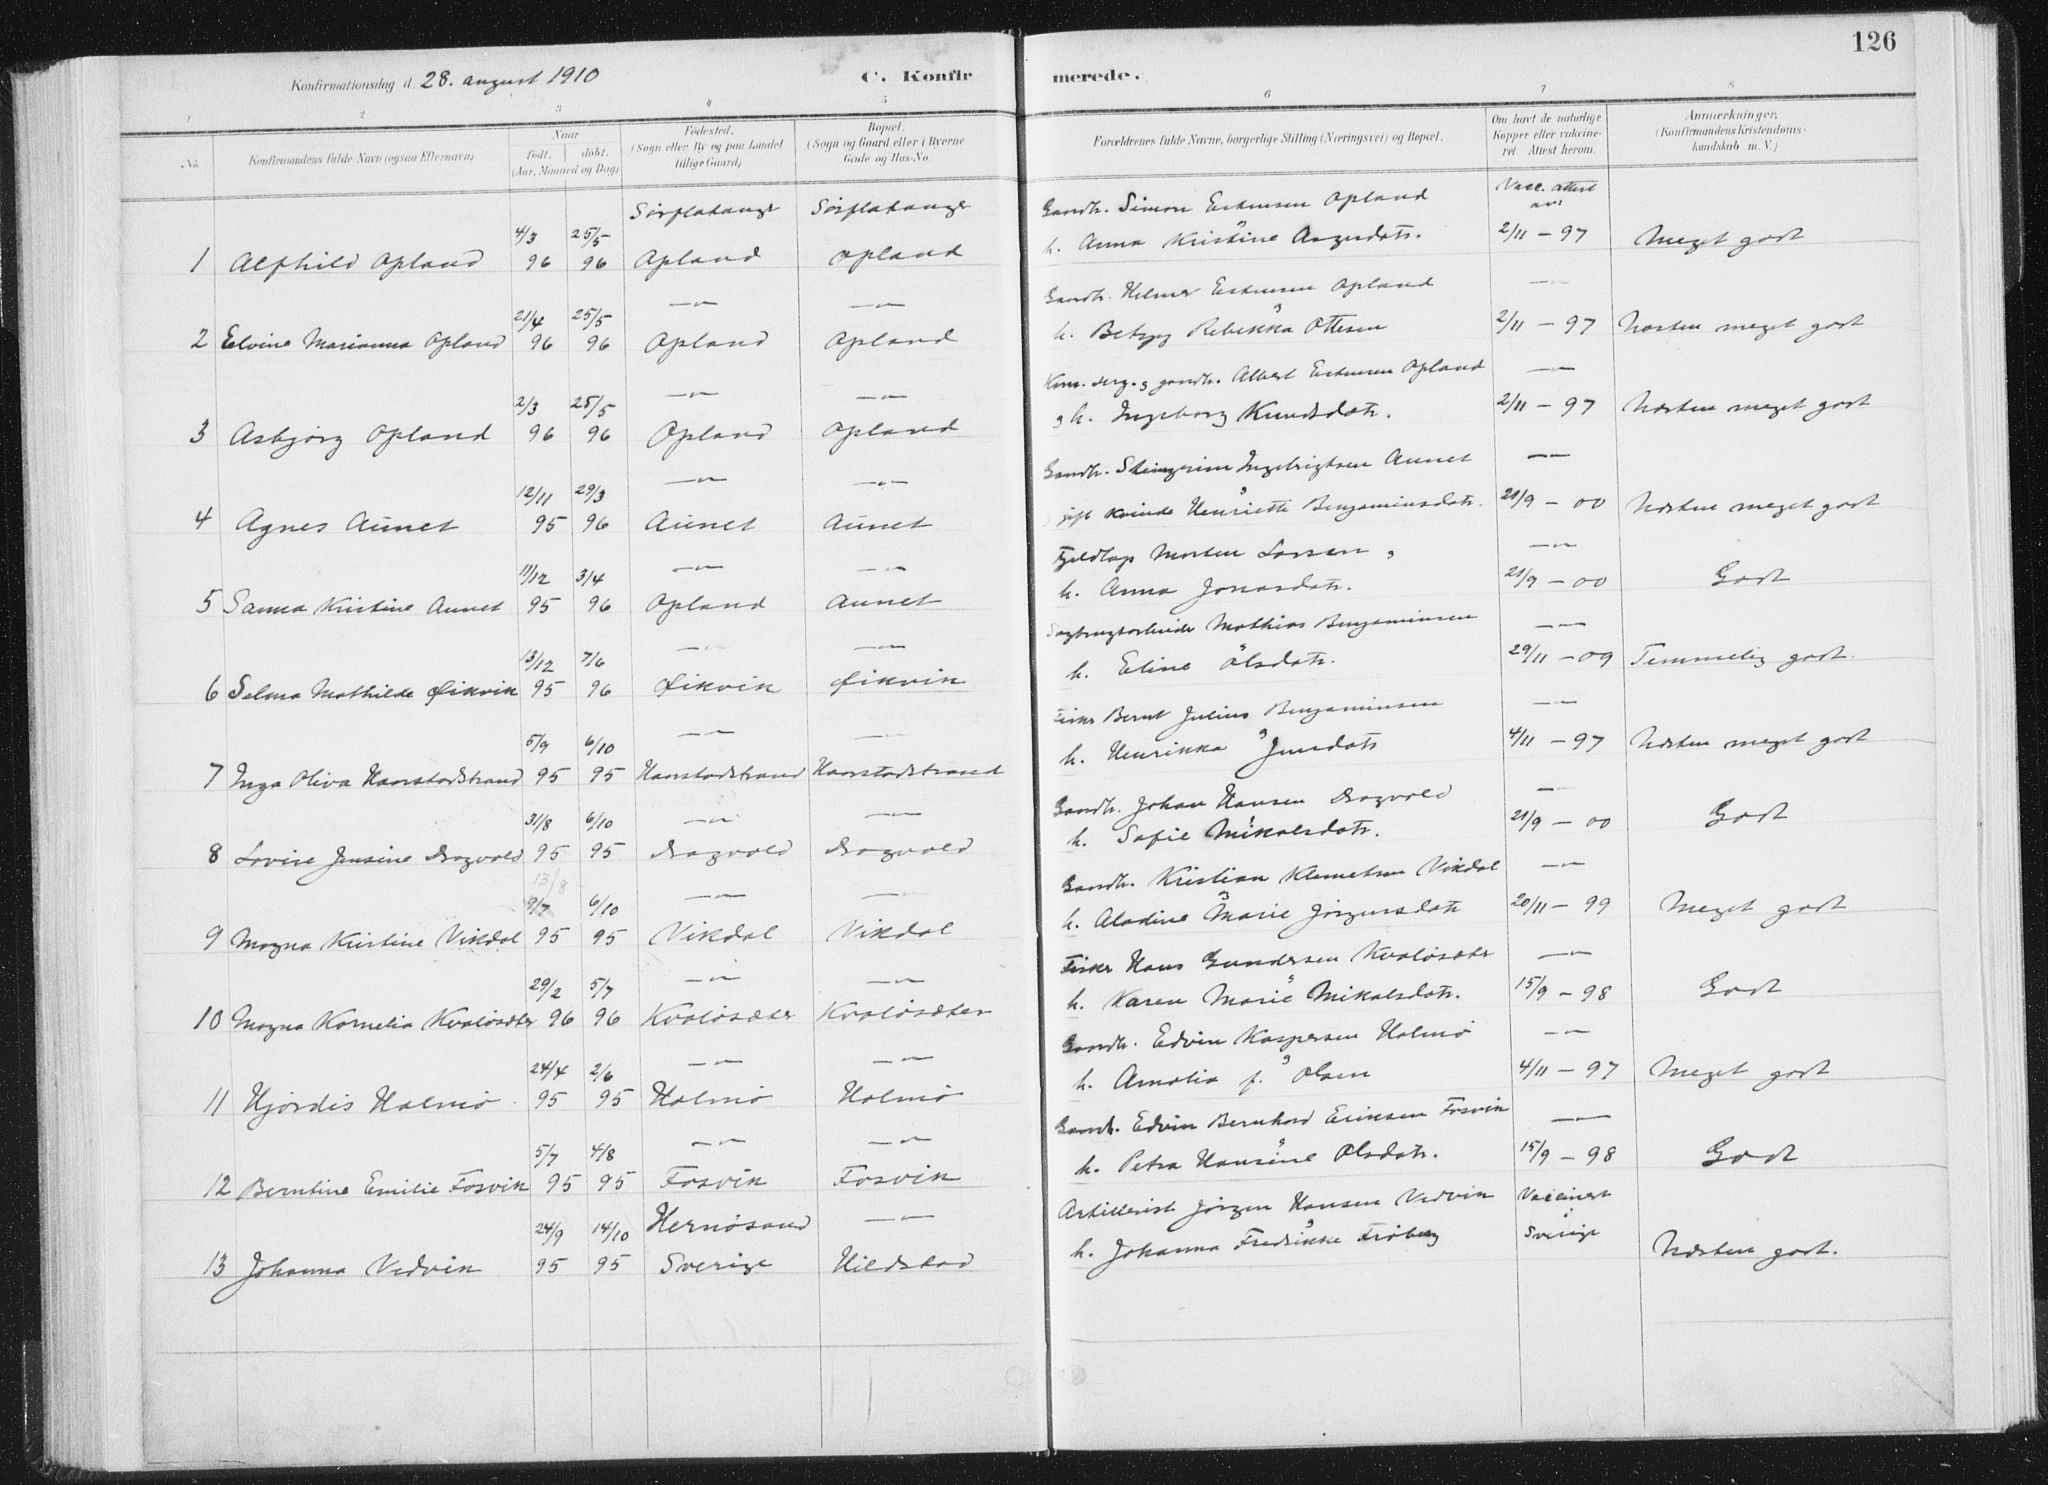 126
Konfirmationsdag d. 28. august 1910
C. Konfirmerede.
1 2 3 4 5 6 7 8
No.
Konfirmandens fulde Navn (ogsaa Efternavn)
Naar
født. døbt.
(Aar, Maaned og Dag)
Fødested.
(Sogn eller By og paa Landet
tillige Gaard)
Bopæl.
(Sogn og Gaard eller i Byerne
Gade og Hus-No.
Forældrenes fulde Navne, borgerlige Stilling (Næringsvei) og Bopæl.
Om havt de naturlige
Kopper eller vakcineret
Attest herom.
Anmærkninger.
(Konfirmandens Kristendomskundskab
m. V.)
Sørflatanger Sørflatanger Gaardb. Simon Estensen Opland Vacc. attest
4/3 25/5 h. Anna Kristine Aagesdatr. 2/11 - 97 Meget godt
1 Alfhild Opland 96 96 Opland Opland
—"— —"— Gaardb. Helmer Estensen Opland —"—
21/4 25/5 h. Betzy Rebekka Ottesen 2/11 - 97 Næsten meget godt
2 Elvine Marianna Opland 96 96 Opland Opland
—"— —"— gaardb. Albert Estensen Opland —"—
2/3 25/5 h. Ingeborg Knudsdatr. 2/11 - 97 Næsten meget godt
3 Asbjørg Opland 96 96 Opland Opland
—"— —"— Gaardb. Steingrim Ingebrigtsen Aunet —"—
12/11 29/3 gift kvinde Henriette Benjaminsdatr. 21/9 - 00 Næsten meget godt
4 Agnes Aunet 95 96 Aunet Aunet
—"— —"— Fjeldlap Morten Larsen , —"—
11/12 3/4 h. Anna Jonasdatr. 21/9 - 00 Godt
5 Sanna Kristine Aunet 95 96 Opland Aunet
—"— —"— Sagbrugsarbeider Mathias Benjaminsen —"—
13/12 7/6 h. Eline Olsdatr. 29/11 - 09 Temmelig godt.
6 Selma Mathilde Øikvik 95 96 Øikvik Øikvik
—"— —"— Fisker Bernt Julius Benjaminsen —"—
5/9 6/10 h. Henrikka Jensdatr 4/11 - 97 Næsten meget godt
7 Inga Oliva Haarstadstrand 95 95 Haarstadstrand Haarstadstrand
—"— —"— Gaardb. Johan Hansen Dragvold —"—
31/8 6/10 h. Sofie Mikalsdatr. 21/9 - 00 Godt
8 Lovise Jensine Dragvold 95 95 Dragvold Dragvold
13/8
—"— —"— Gaardb. Kristian Klemetsen Vikdal —"—
9/7 6/10 h. Aladine Marie Jørgensdatr 20/11 - 99 Meget godt
9 Magna Kristine Vikdal 95 95 Vikdal Vikdal
—"— —"— Fisker Hans Gundersen Kvaløsæter —"—
29/2 5/7 h. Karen Marie Mikalsdatr. 15/9 - 98 Godt
10 Magna Kornelia Kvaløsæter 96 96 Kvaløsæter Kvaløsæter
—"— —"— Gaardb. Edvin Kaspersen Halmø —"—
24/4 2/6 h. Amalia f. Olsen 4/11 - 97 Meget godt
11 Hjørdis Halmø 95 95 Halmø Halmø
—"— —"— Gaardb. Edvin Bernhard Eriksen Fosvik —"—
5/7 4/8 h. Petra Hansine Olsdatr. 15/9 - 98 Godt
12 Berntine Emilie Fosvik 95 95 Fosvik Fosvik
Hernøsand —"— Artillerist Jørgen Hansen Vedvik Vaccinert
24/9 14/10 h. Johanna Fredrikke Frøberg Sverige
13 Johanna Vedvik 95 95 Sverige Hildstad Næsten godt.